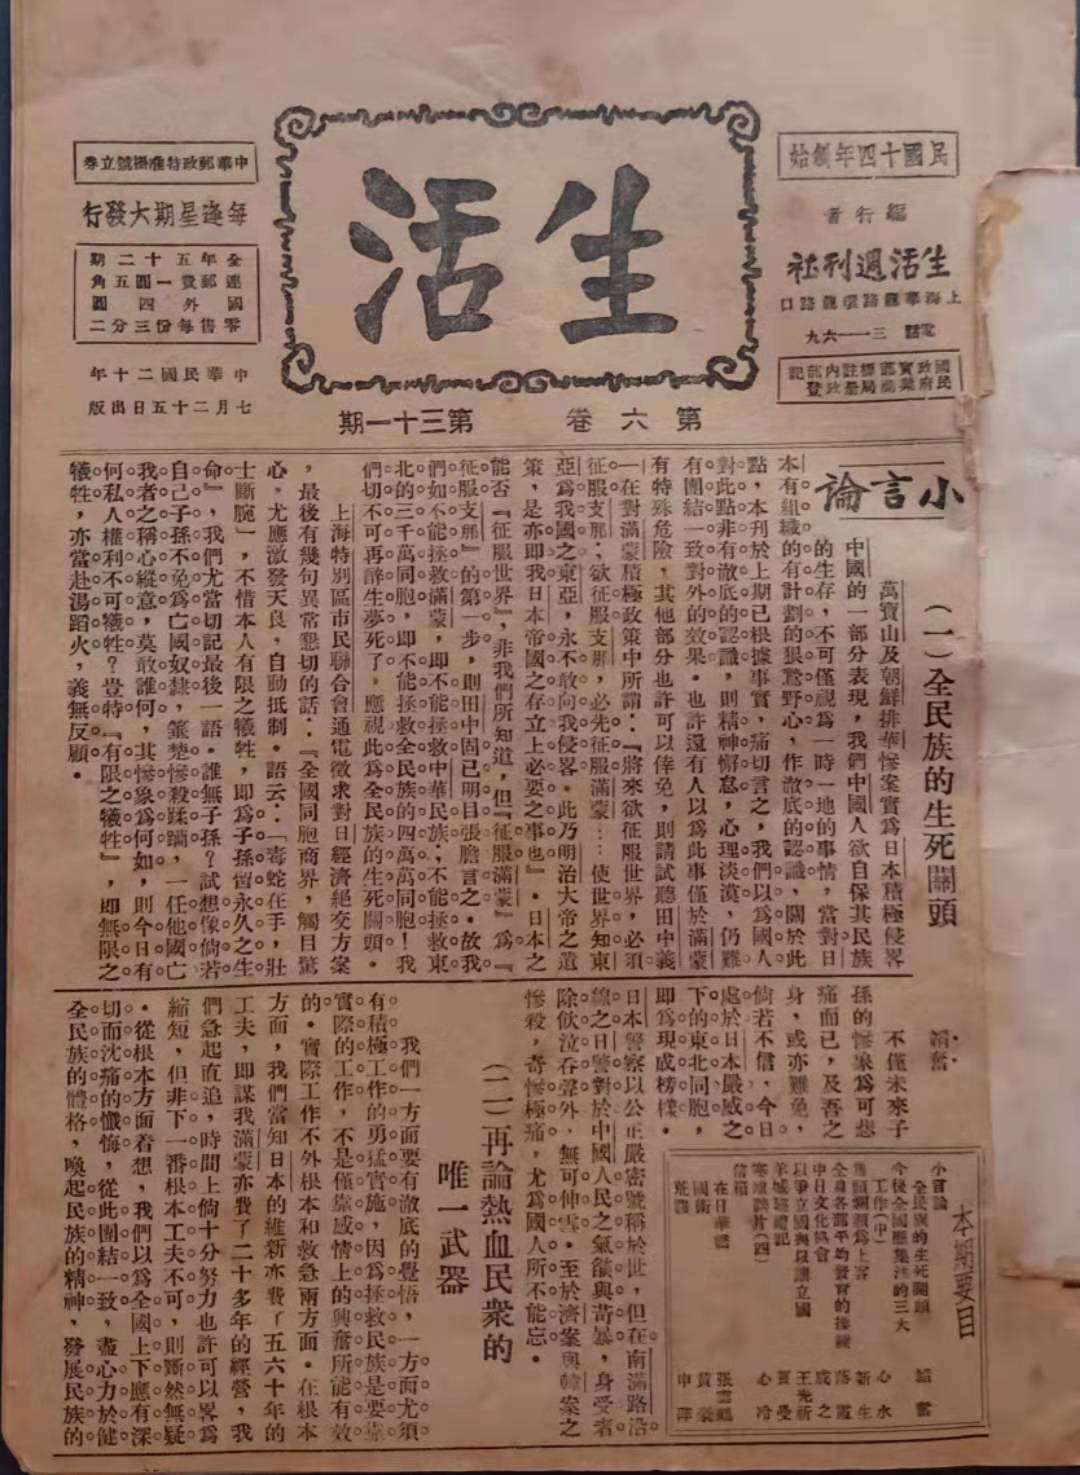 民國十四年創始
編行者
生活週刊社
上海華龍路環龍路口
電話 三一一六九
國民政府實業部商標局註冊內政部登記
生活
第六卷 第三十一期
中華郵政特准掛號立券
每逢星期六發行
全年五十二期
連郵費一圓五角
國外四圓
零售每份三分二
中華民國二十年
七月二十五日出版
小言論
(一)全民族的生死關頭
萬寶山及朝鮮排華慘案實爲日本積極侵畧
中國的一部分表現，我們中國人欲自保其民族
的生存，不可僅視爲一時一地的事情，當對日
本有組織的有計劃的狠鷙野心，作澈底的認識，關於此
點，本刊於上期已根據事實，痛切言之，我們以爲國人
對此點非有澈底的認識，則精神懈怠，心理淡漠，仍難
有團結一致對外的效果。也許還有人以爲此事僅於滿蒙
有特殊危險，其他部分也許可以倖免，則請試聽田中義
一在對滿蒙積極政策中所謂：『將來欲征服世界，必須
征服支那；欲征服支那，必先征服滿蒙…使世界知東
亞爲我國之東亞，永不敢向我侵畧。此乃明治大帝之遺
策，是亦即我日本帝國之存立上必要之事也』。日本之
能否『征服世界』，非我們所知道，但『征服滿蒙』爲『
征服支那』的第一步，則田中固已明目張膽言之。故我
們如不能拯救滿蒙，即不能拯救中華民族；不能拯救東
北的三千萬同胞，即不能拯救全民族的四萬萬同胞！我
們切不可再醉生夢死了，應視此爲全民族的生死關頭。
上海特別區市民聯合會通電徵求對日經濟絕交方案
，最後有幾句異常懇切的話：『全國同胞商界，觸目驚
心，尤應激發天良，自動抵制。語云：「毒蛇在手，壯
士斷腕」，不惜本人有限之犧牲，即爲子孫留永久之生
命』，我們尤當切記最後一語。誰無子孫？試想像倘若
自己子孫不免爲亡國奴隸，箠楚慘殺蹂躪，一任他國亡
我者之稱心縱意，莫敢誰何，其慘象爲何如，則今日有
何私人權利不可犧牲？豈特『有限之犧牲』，即無限之
犧牲，亦當赴湯蹈火，義無反顧。
韜奮
不僅未來子
孫的慘象爲可想
痛而已，及吾之
身，或亦難免，
倘若不信，今日
處於日本嚴威之
下的東北同胞，
即爲現成榜樣。
日本警察以公正嚴密號稱於世，但在南滿路沿
線之日警對於中國人民之氣燄與苛暴，身受者
除飲泣吞聲外，無可伸雪。至於濟案與韓案之
慘殺，奇慘極痛，尤爲國人所不能忘。
(二)再論熱血民衆的
唯一武器
我們一方面要有澈底的覺悟，一方面尤須
有積極工作的勇猛實施，因爲拯救民族是要靠
實際的工作，不是僅靠感情上的興奮所能有效
的。實際工作不外根本和救急兩方面。在根本
方面，我們當知日本的維新亦費了五六十年的
工夫，即謀我滿蒙亦費了二十多年的經營，我
們急起直追，時間上倘十分努力也許可以畧爲
縮短，但非下一番根本工夫不可，則斷然無疑
。從根本方面着想，我們以爲全國上下應有深
切而沈痛的懺悔，從此團結一致，盡心力於健
全民族的體格，喚起民族的精神，發展民族的
本期要目
小言論
全民族的生死關頭 韜奮
今後全國應集注的三大
工作(中) 心水
焦頭爛額爲上客 新生
全身各部平均發育的操練 落霞
中日文化協會 成之
以爭立國與以讓立國 王光祈
羊城巡禮記 
寒燼談片(四) 心冷
信箱
在日華僑
國術 黃
荒謬 申萍